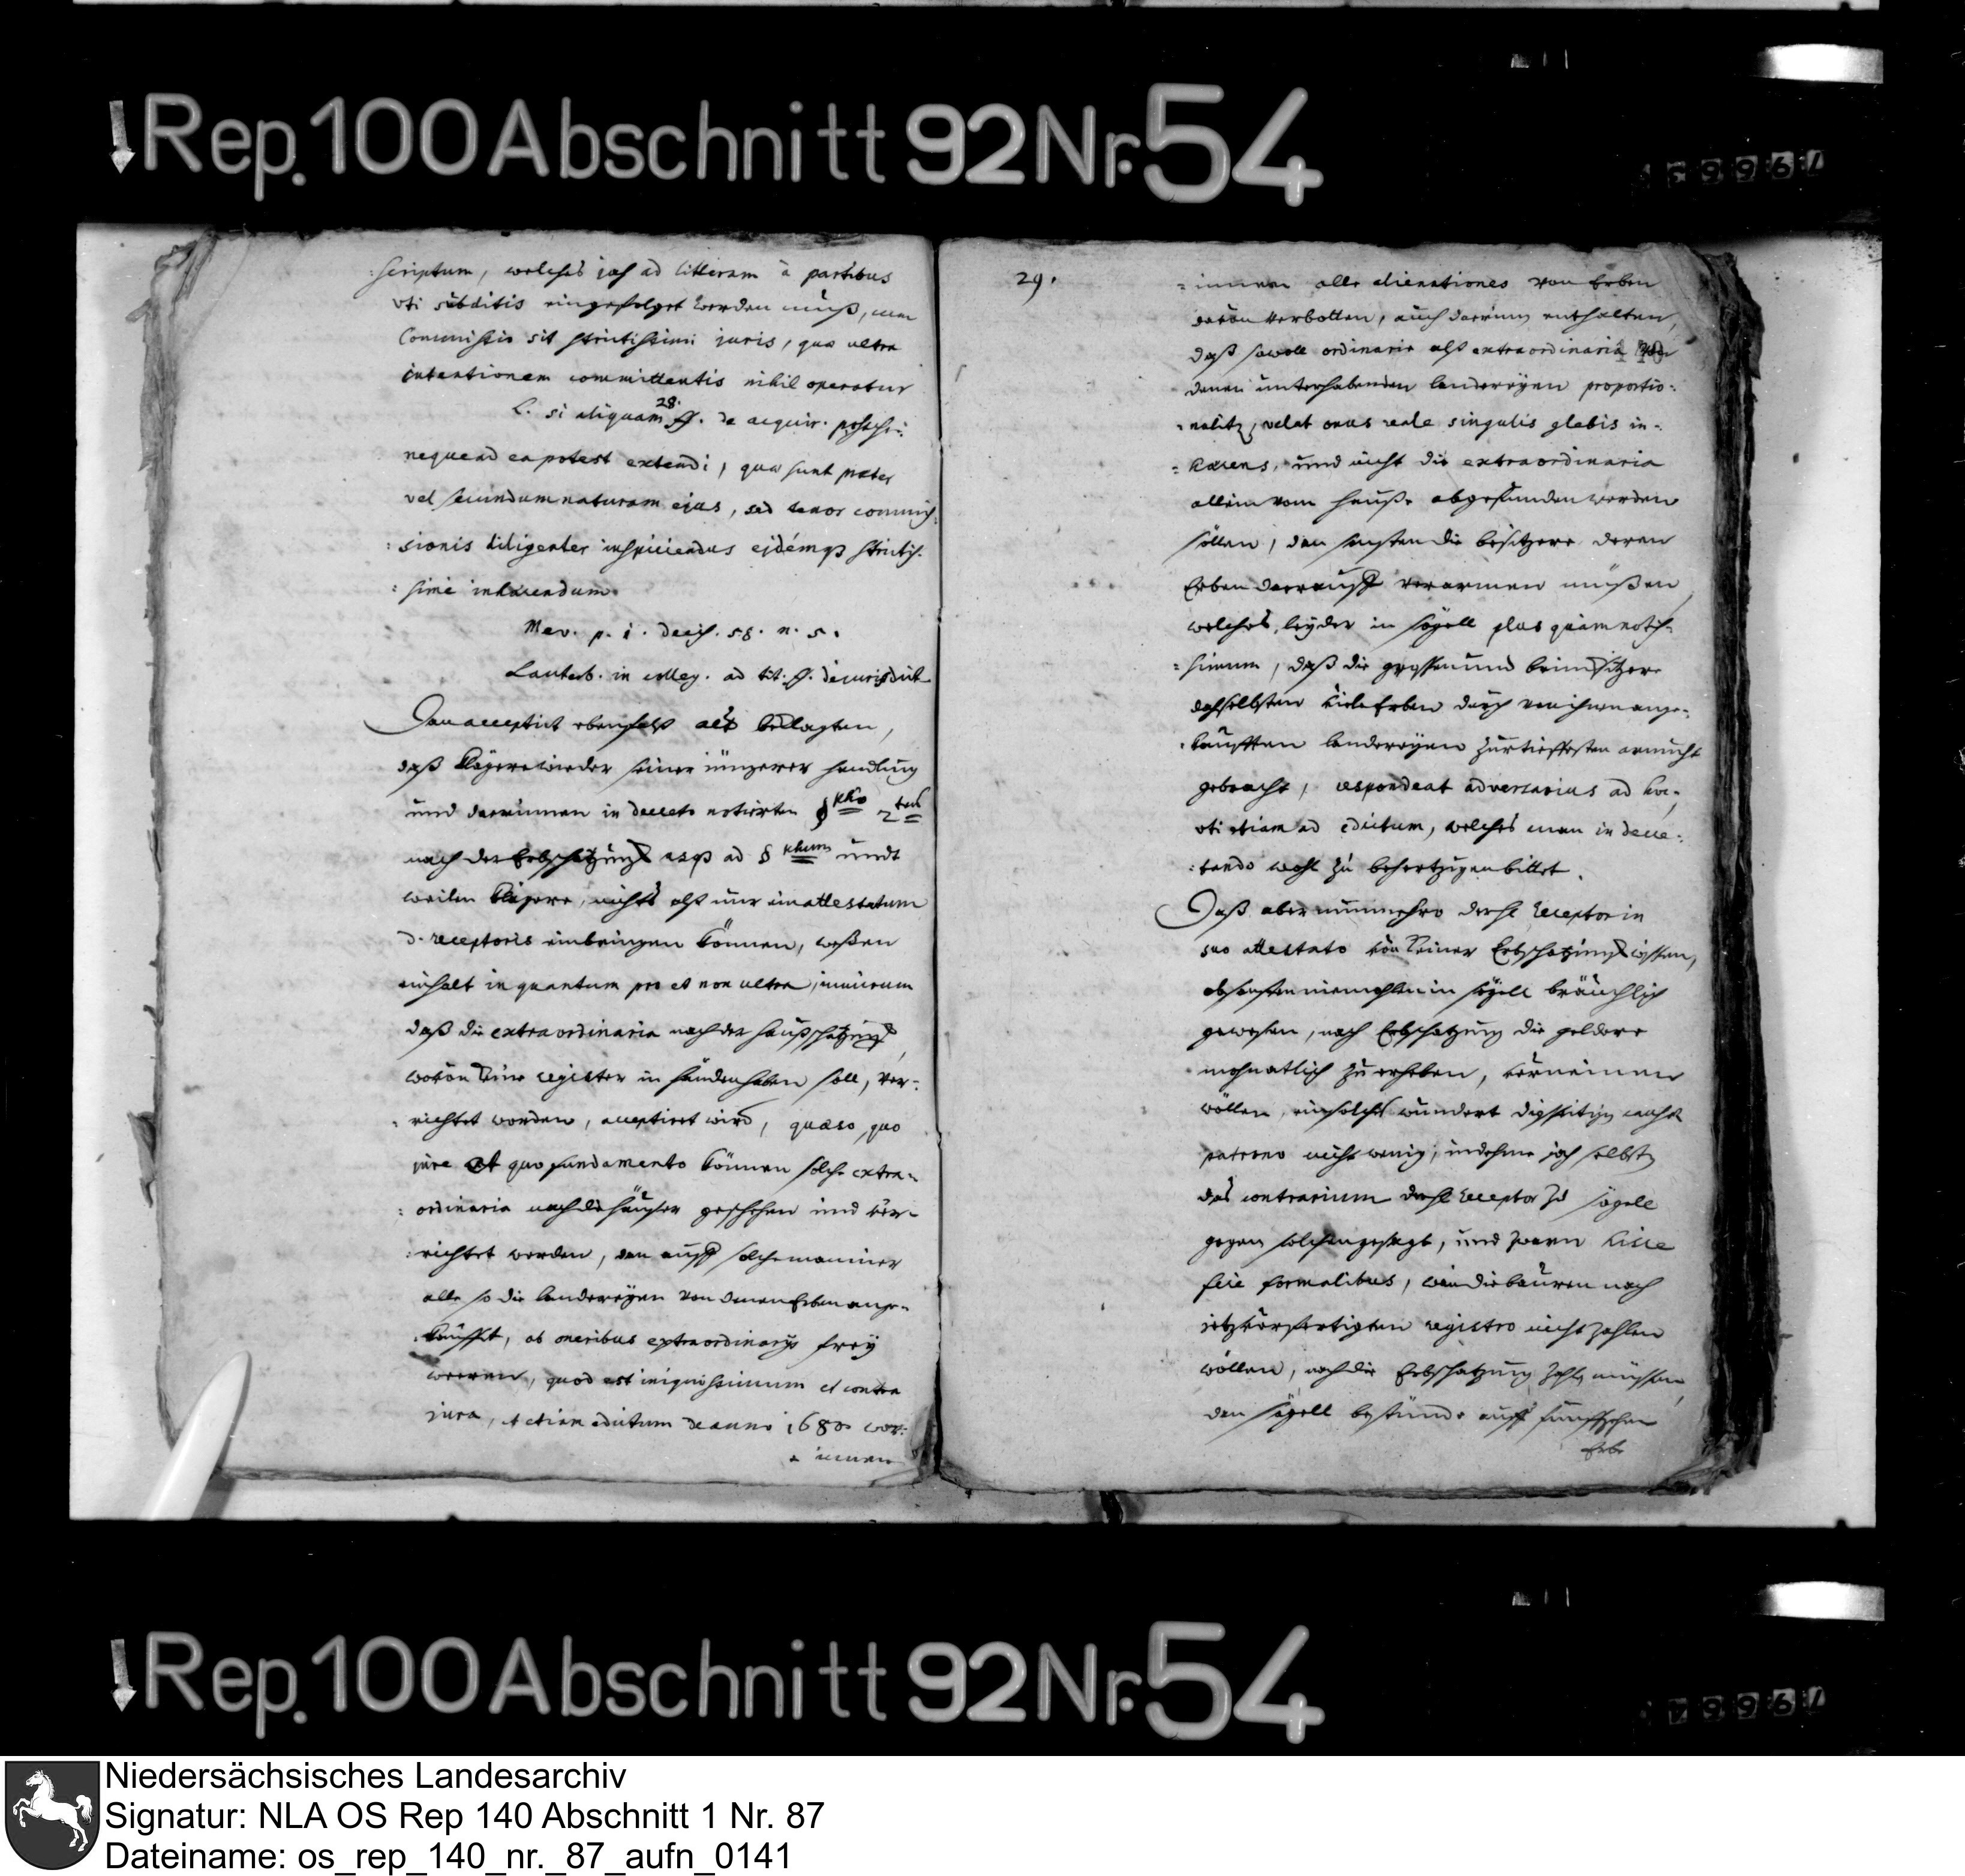 Rep. 100 Abschnitt 92 Nr. 54
scriptum, welches ja ad litteram à partibus
uti subditis eingefolget werden muß, cum
Commissio sit strictissimi juris, quæ ultra
intentionem committentis nihil operatur
L. si aliquam 28. ff. de acquir. possess:
neque ad ea potest extendi, quæ sunt præter
vel secundum naturam ejus, sed tenor commis-
sionis diligenter inspiciendus eidémq3 strictis-
simè inhærendum.
Mev. p. 1. decis. 58. n. 5.
Lauterb. in colleg. ad tit. ff. de jurisdict
Man acceptirt ebenfalß als beklagten,
daß Klägere wieder seiner jüngerer handlung
und darinnen in decreto notirten § 2ten
nach der Erbschatzung usq3 ad § undt
weilen Klägere, nichts alß nur ein attestatum
d. receptoris einbringen können, weßen
einhalt in quantum pro et non ultra, nimirum
daß die extraordinaria nach der haußschatzung
wovon keine register in händen haben soll, ver-
richtet worden, acceptiret wird, quæso, quo
jure et quo fundamento können solche extra-
ordinaria nach die häußer geschehen und ver-
richtet werden, dan auff solche manier
alle so die landereyen von denen Erben ange-
kaufft, ab oneribus extraordinarys frey
weren, quod est iniquissimum et contra
jura, et etiam edictum de anno 1680 wor-
innen
29.
innen alle alienationes von Erben
davon verbotten, auch darinn enthalten,
daß sowoll ordinaria alß extraordinaria von
denen unterhabenden landereyen proportio-
naliter, velut onus reale singulis glebis in-
hærens, und nicht die extraordinaria
allein vom hauße abgefunden werden
sollen, dan sonsten die besitzere deren
Erben darauff verarmen müßen,
welches leyder in Sögell plus quam notis-
simum, daß die grossen und beinsitzere
daselbsten viele Erben durch von ihnen ange-
kaufften landereyen zur tieffesten armuht
gebracht, respondeat adversarius ad hoc,
uti etiam ad edictum, welches man in decre-
tando wohl zu behertzigen bittet.
Daß aber nunmehro derhl Receptor in
suo attestato von keiner Erbschatzung wissen,
ob sonsten niemahlen in Sögell bräuchlich
gewesen, nach Erbschatzung die geldere
mohnatlich zu erheben, verneinen
wollen, ein solches wundert dießeitigen
patrono nicht wenig, indehme ja selbsten
das contrarium derhl Receptor zu Sögell
gegen solchen gesagt, und zwarn hisce
fere formalibus, wan die bauren nach
jetz verfertigten registro nicht zahlen
wollen, nach die Erbschatzung zahlen müssen,
den Sögell bestünde auff funffzehen
Erbe
Rep. 100 Abschnitt 92 Nr. 54
Niedersächsisches Landesarchiv
Signatur: NLA OS Rep 140 Abschnitt 1 Nr. 87
Dateiname: os_rep_140_nr._87_aufn_0141